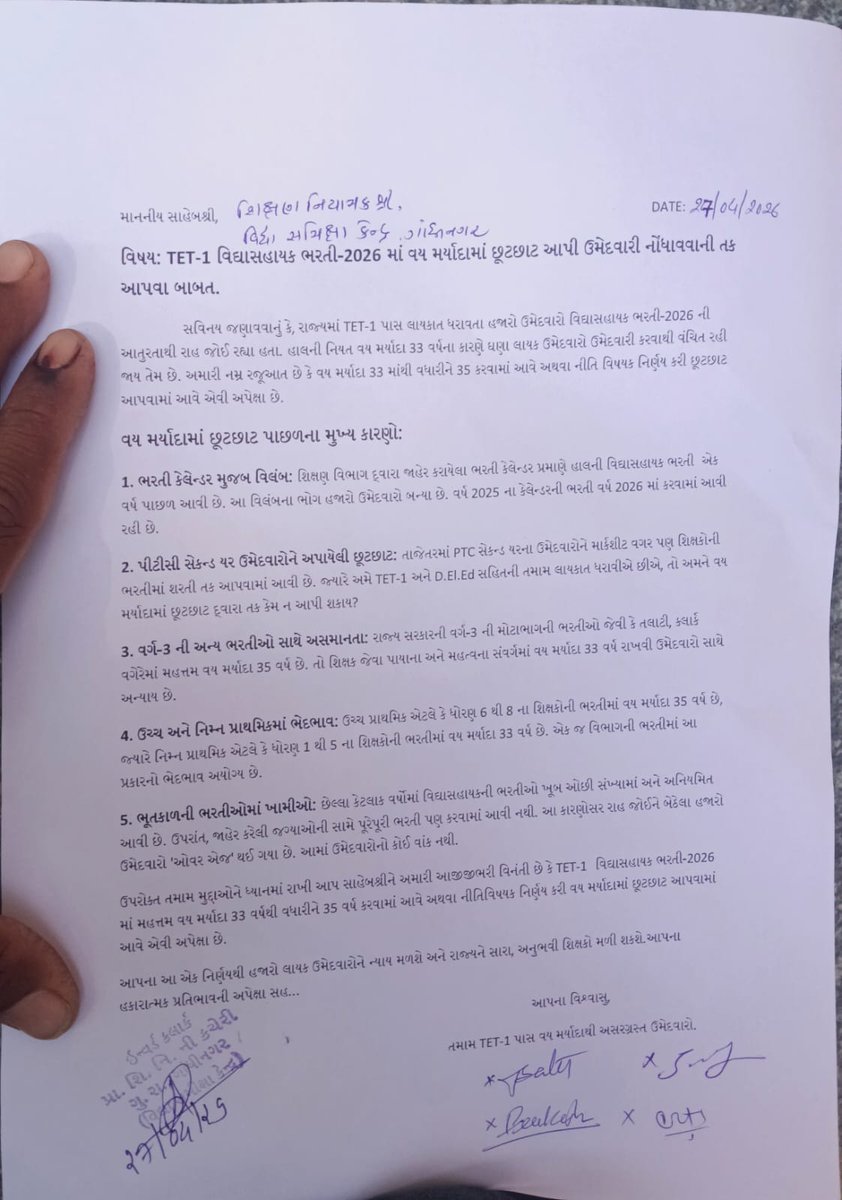 માનનીય સાહેબશ્રી, શિક્ષણ નિયામક શ્રી,
DATE: 27/04/2026
વિદ્યા સમિક્ષા કેન્દ્ર ગાંધીનગર
વિષય: TET-1 વિદ્યાસહાયક ભરતી-2026 માં વય મર્યાદામાં છૂટછાટ આપી ઉમેદવારી નોંધાવવાની તક
આપવા બાબત.
સવિનય જણાવવાનું કે, રાજ્યમાં TET-1 પાસ લાયકાત ધરાવતા હજારો ઉમેદવારો વિદ્યાસહાયક ભરતી-2026 ની
આતુરતાથી રાહ જોઈ રહ્યા હતા. હાલની નિયત વય મર્યાદા 33 વર્ષના કારણે ઘણા લાયક ઉમેદવારો ઉમેદવારી કરવાથી વંચિત રહી
જાય તેમ છે. અમારી નમ્ર રજૂઆત છે કે વય મર્યાદા 33 માંથી વધારીને 35 કરવામાં આવે અથવા નીતિ વિષયક નિર્ણય કરી છૂટછાટ
આપવામાં આવે એવી અપેક્ષા છે.
વય મર્યાદામાં છૂટછાટ પાછળના મુખ્ય કારણો:
1. ભરતી કેલેન્ડર મુજબ વિલંબ: શિક્ષણ વિભાગ દ્વારા જાહેર કરાયેલા ભરતી કેલેન્ડર પ્રમાણે હાલની વિદ્યાસહાયક ભરતી એક
વર્ષ પાછળ આવી છે. આ વિલંબના ભોગ હજારો ઉમેદવારો બન્યા છે. વર્ષ 2025 ના કેલેન્ડરની ભરતી વર્ષ 2026 માં કરવામાં આવી
રહી છે.
2. પીટીસી સેકન્ડ યર ઉમેદવારોને અપાયેલી છૂટછાટ: તાજેતરમાં PTC સેકન્ડ યરના ઉમેદવારોને માર્કશીટ વગર પણ શિક્ષકોની
ભરતીમાં શરતી તક આપવામાં આવી છે. જ્યારે અમે TET-1 અને D.El.Ed સહિતની તમામ લાયકાત ધરાવીએ છીએ, તો અમને વય
મર્યાદામાં છૂટછાટ દ્વારા તક કેમ ન આપી શકાય?
3. વર્ગ-3 ની અન્ય ભરતીઓ સાથે અસમાનતા: રાજ્ય સરકારની વર્ગ-3 ની મોટાભાગની ભરતીઓ જેવી કે તલાટી, ક્લાર્ક
વગેરેમાં મહત્તમ વય મર્યાદા 35 વર્ષ છે. તો શિક્ષક જેવા પાયાના અને મહત્વના સંવર્ગમાં વય મર્યાદા 33 વર્ષ રાખવી ઉમેદવારો સાથે
અન્યાય છે.
4. ઉચ્ચ અને નિમ્ન પ્રાથમિકમાં ભેદભાવ: ઉચ્ચ પ્રાથમિક એટલે કે ધોરણ 6 થી 8 ના શિક્ષકોની ભરતીમાં વય મર્યાદા 35 વર્ષ છે,
જ્યારે નિમ્ન પ્રાથમિક એટલે કે ધોરણ 1 થી 5 ના શિક્ષકોની ભરતીમાં વય મર્યાદા 33 વર્ષ છે. એક જ વિભાગની ભરતીમાં આ
પ્રકારનો ભેદભાવ અયોગ્ય છે.
5. ભૂતકાળની ભરતીઓમાં ખામીઓ: છેલ્લા કેટલાક વર્ષોમાં વિદ્યાસહાયકની ભરતીઓ ખૂબ ઓછી સંખ્યામાં અને અનિયમિત
આવી છે. ઉપરાંત, જાહેર કરેલી જગ્યાઓની સામે પૂરેપૂરી ભરતી પણ કરવામાં આવી નથી. આ કારણોસર રાહ જોઈને બેઠેલા હજારો
ઉમેદવારો 'ઓવર એજ' થઈ ગયા છે. આમાં ઉમેદવારોનો કોઈ વાંક નથી.
ઉપરોક્ત તમામ મુદ્દાઓને ધ્યાનમાં રાખી આપ સાહેબશ્રીને અમારી આજીજીભરી વિનંતી છે કે TET-1 વિદ્યાસહાયક ભરતી-2026
માં મહત્તમ વય મર્યાદા 33 વર્ષથી વધારીને 35 વર્ષ કરવામાં આવે અથવા નીતિવિષયક નિર્ણય કરી વય મર્યાદામાં છૂટછાટ આપવામાં
આવે એવી અપેક્ષા છે.
આપના આ એક નિર્ણયથી હજારો લાયક ઉમેદવારોને ન્યાય મળશે અને રાજ્યને સારા, અનુભવી શિક્ષકો મળી શકશે.આપના
હકારાત્મક પ્રતિભાવની અપેક્ષા સહ...
આપના વિશ્વાસુ,
તમામ TET-1 પાસ વય મર્યાદાથી અસરગ્રસ્ત ઉમેદવારો.
ઈન્વર્ડ ક્લાર્ક
પ્રા. શિ. નિ. ની કચેરી
ગુ. રા. ગાંધીનગર
27/04/26